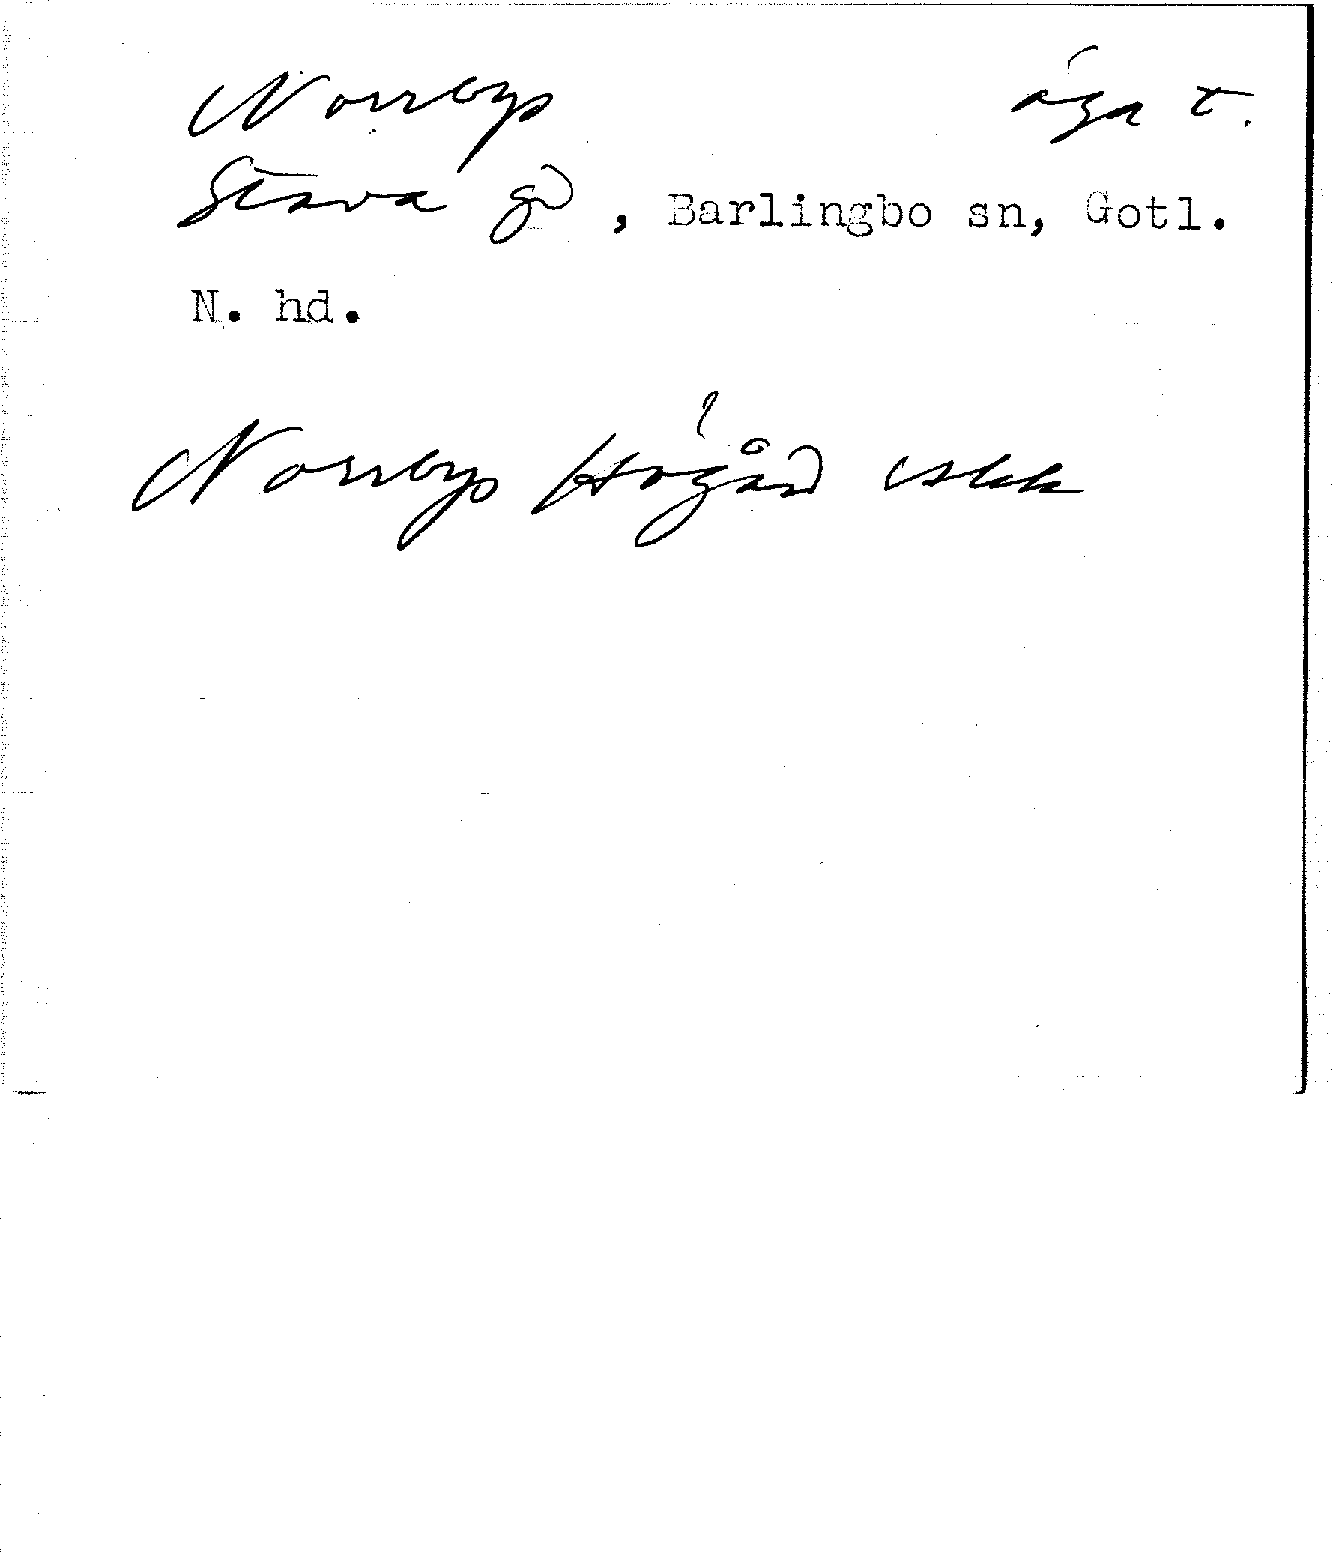 Norrby äga t.
Stava gd, Barlingbo sn, Gotl.
N. hd.
Norrby Högård iskk